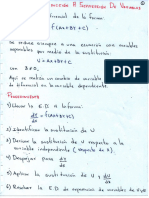 Reducción A Separación De Variables
diferencial de la forma:
dy/dx = f(Ax+By+C)
Se puede reducir a una ecuación con variables
separables por medio de la sustitución:
U = Ax+By+C
con B≠0.
Aquí se realiza un cambio de variable de
Procedimiento
1) Llevar la E.D. A la forma:
dy/dx = f(Ax+By+C)
2) Identificar la sustitución de U
3) Derivar la sustitución de U respecto a la
variable independiente (respecto de X)
4) Despejar para dy/dx
5) Aplicar la sustitución de U y dy/dx
6) Resolver la E.D. de separación de variables